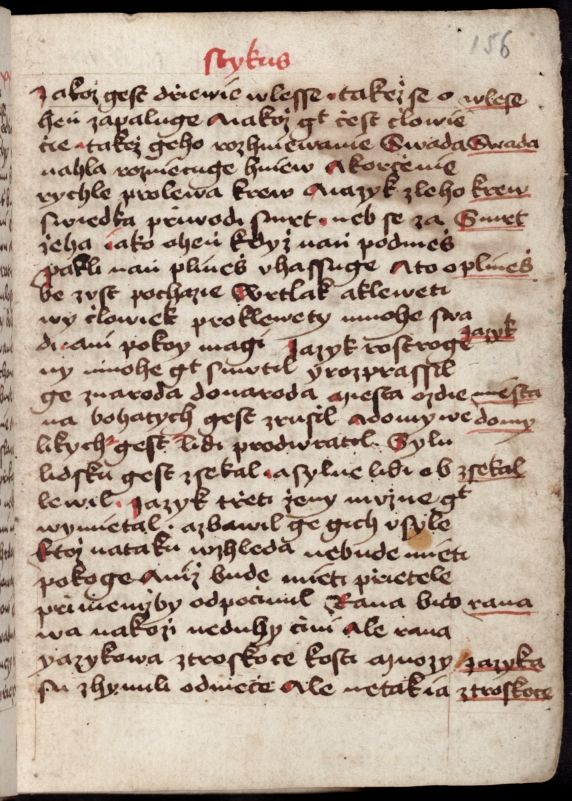 156
Jakož gest drziewie wlesse takež se o wlese
heň zapaluge Ajakož gt čest člowie
čie takež geho rozhniewanie Swada Swada
nahla roznieczuge hniew Akorženie
rychle prolewa krew Ajazyk zleho krew
swiedka prziwodi smrt neb se za Smrt
žeha jako oheň když naň podmeš
pakli naň plineš vhassuge Ato o plineš
be zvst pochazie Wrtlak a kleweti
wy člowiek proklewety mnohe swa
diaani pokoy magi Jazyk rostroge Jazyk
ny mnohe gt smutil yrozprassil
ge znaroda donaroda Miesta ozdie miesta
na bohatych gest zrusil Adomy we domy
likych gest lidi prodwratil Sylu
lidsku gest zsekal asylne lidi ob zsekal
lewil Jazyk třeti ženy mvžne gt
wymietal azbawil ge gich vsyle
ktož nataku wzhleda nebude mieti
pokoge Aniž bude mieti prietele
wniemžby odpočinul Rana bičo rana
wa nakoži neduhy čini Ale rana
yazykowa ztroskoce kosti Mnozy Jazyka
su zhynuli odmeče Ale netak ia ztroskoce